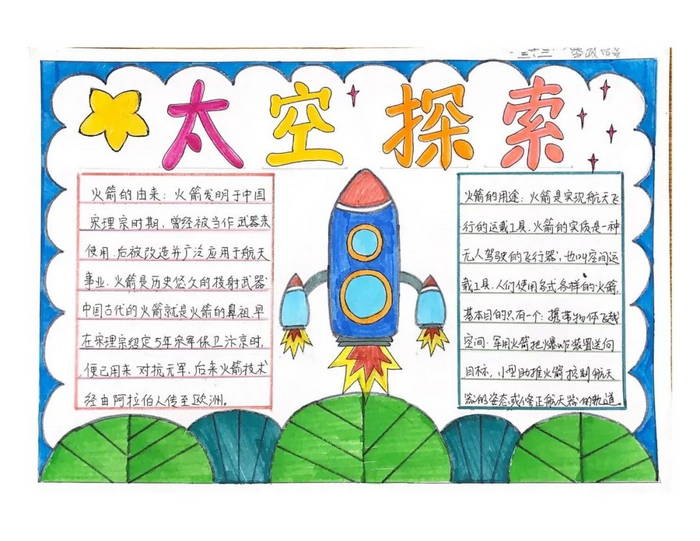 太空探索
火箭的由来：火箭发明于中国
宋理宗时期，曾经被当作武器来
使用.后被改造并广泛应用于航天
事业.火箭是历史悠久的投射武器
中国古代的火箭就是火箭的鼻祖.早
在宋理宗绍定5年宋军保卫汴京时，
便已用来对抗元军，后来火箭技术
经由阿拉伯人传至欧洲。
火箭的用途：火箭是实现航天飞
行的运载工具.火箭的实质是一种
无人驾驶的飞行器，也叫空间运
载工具.人们使用各式各样的火箭，
基本目的只有一个：携带物体飞越
空间：军用火箭把爆炸装置送向
目标，小型助推火箭控制航天
器的姿态或修正航天器的轨道.